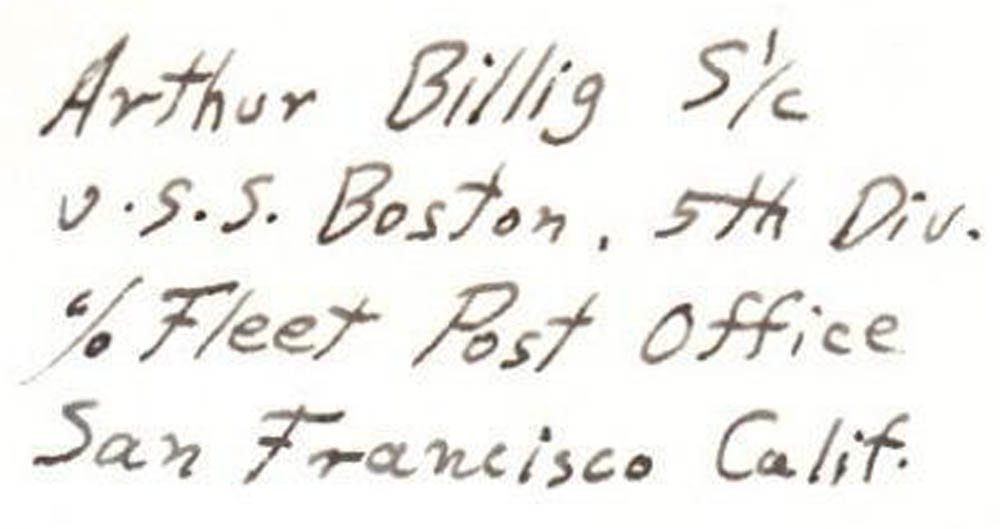 Arthur Billig S1/c
U.S.S. Boston, 5th Div.
c/o Fleet Post Office
San Francisco Calif.